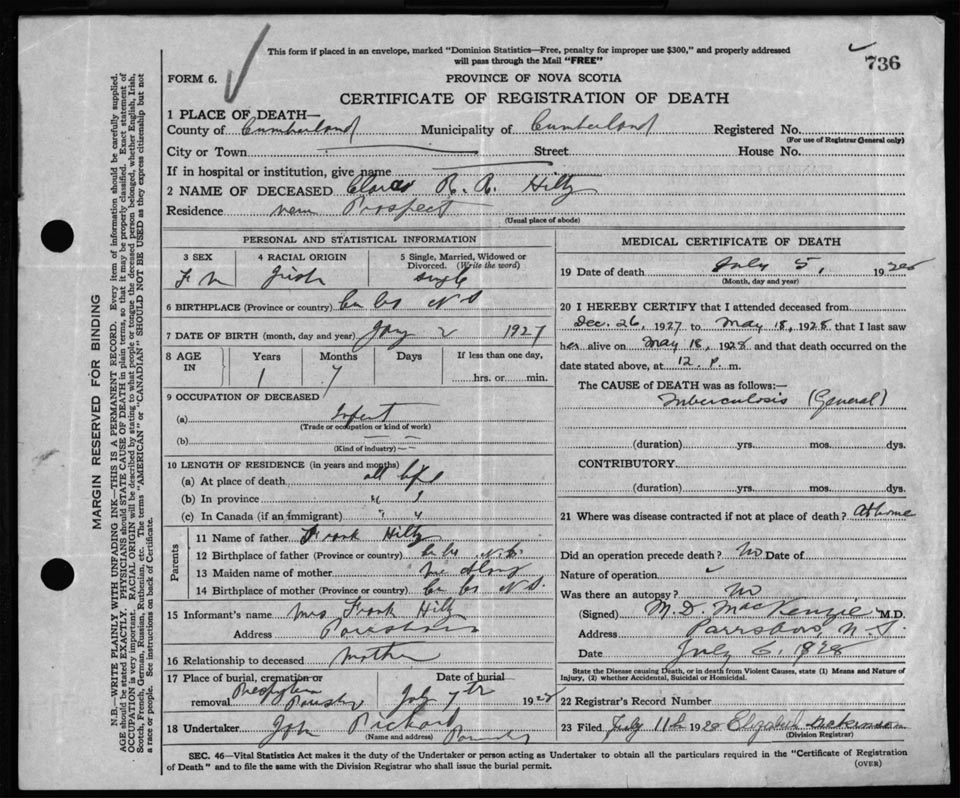 This form if placed in an envelope, marked "Dominion Statistics—Free, penalty for improper use $300," and properly addressed
will pass through the Mail "FREE"
736
FORM 6.
PROVINCE OF NOVA SCOTIA
CERTIFICATE OF REGISTRATION OF DEATH
1 PLACE OF DEATH—
County of Cumberland Municipality of Cumberland Registered No.
(For use of Registrar General only)
City or Town Street House No.
If in hospital or institution, give name
2 NAME OF DECEASED R. A. Hiltz
Residence Prospect
(Usual place of abode)
PERSONAL AND STATISTICAL INFORMATION
3 SEX 4 RACIAL ORIGIN 5 Single, Married, Widowed or Divorced. (Write the word)
Irish single
6 BIRTHPLACE (Province or country) N S
7 DATE OF BIRTH (month, day and year) 2 1927
8 AGE IN Years Months Days If less than one day,
1 7 hrs. or min.
9 OCCUPATION OF DECEASED
(a) Infant
(Trade or occupation or kind of work)
(b)
(Kind of industry)
10 LENGTH OF RESIDENCE (in years and months)
(a) At place of death all life
(b) In province " "
(c) In Canada (if an immigrant) " "
Parents
11 Name of father Frank Hiltz
12 Birthplace of father (Province or country) N.S.
13 Maiden name of mother
14 Birthplace of mother (Province or country) N S.
15 Informant's name Mrs Frank Hiltz
Address Parrsboro
16 Relationship to deceased Mother
17 Place of burial, cremation or removal Date of burial
Parrsboro July 7th 1928
18 Undertaker John Pickard
(Name and address)
MEDICAL CERTIFICATE OF DEATH
19 Date of death July 5, 1928
(Month, day and year)
20 I HEREBY CERTIFY that I attended deceased from
Dec. 26, 1927 to May 18, 1928 that I last saw
her alive on May 18, 1928 and that death occurred on the
date stated above, at 12. P. m.
The CAUSE of DEATH was as follows:—
Tuberculosis (General)
(duration) yrs. mos. dys.
CONTRIBUTORY
(duration) yrs. mos. dys.
21 Where was disease contracted if not at place of death? At home
Did an operation precede death? No Date of
Nature of operation
Was there an autopsy? No
(Signed) M. D. MacKenzie M.D.
Address Parrsboro N.S.
Date July 6, 1928
State the Disease causing Death, or in death from Violent Causes, state (1) Means and Nature of
Injury, (2) whether Accidental, Suicidal or Homicidal.
22 Registrar's Record Number
23 Filed July 11th 1928 Elizabeth
(Division Registrar)
SEC. 46—Vital Statistics Act makes it the duty of the Undertaker or person acting as Undertaker to obtain all the particulars required in the "Certificate of Registration
of Death" and to file the same with the Division Registrar who shall issue the burial permit.
(OVER)
MARGIN RESERVED FOR BINDING
N.B.—WRITE PLAINLY WITH UNFADING INK—THIS IS A PERMANENT RECORD. Every item of information should be carefully supplied.
AGE should be stated EXACTLY. PHYSICIANS should STATE CAUSE OF DEATH in plain terms, so that it may be properly classified. Exact statement of
OCCUPATION is very important. RACIAL ORIGIN will be described by stating to what people or tongue the deceased person belonged, whether English, Irish,
Scotch, French, German, Russian, Ruthenian, etc. The terms "AMERICAN" or "CANADIAN" SHOULD NOT BE USED as they express citizenship but not
a race or people. See instructions on back of Certificate.